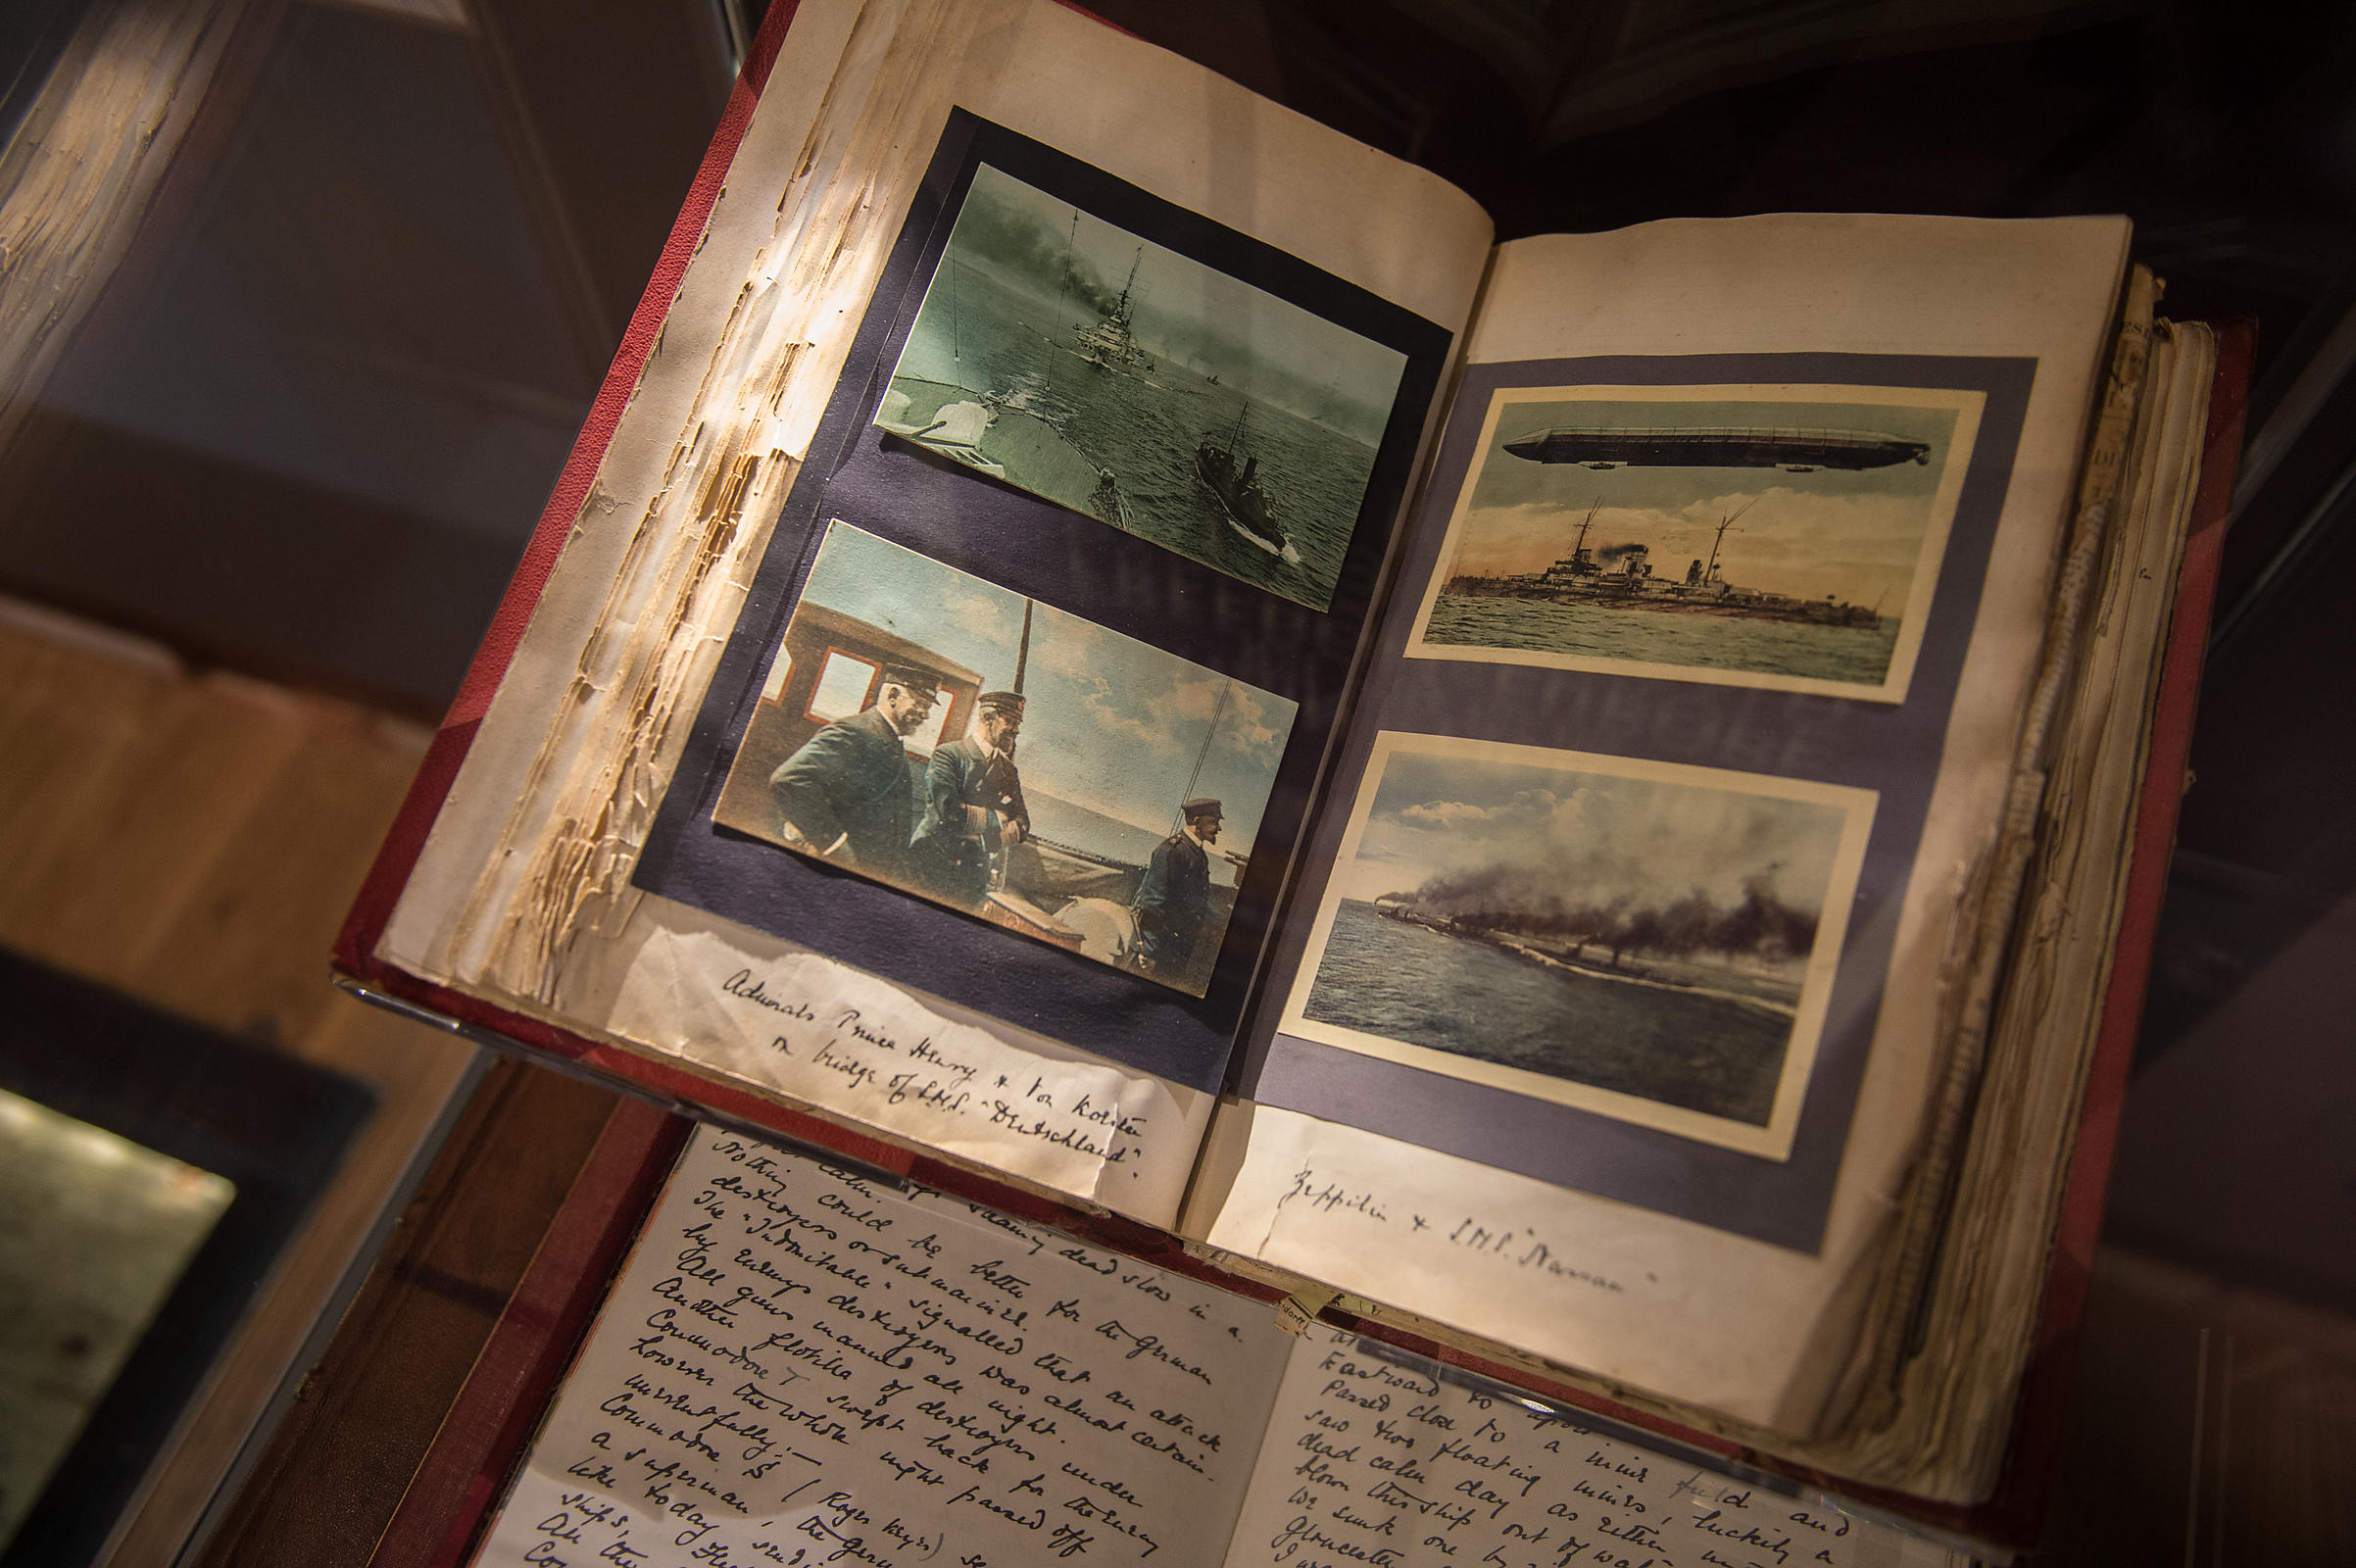 Admirals Prince Henry & Von Koester
on bridge of S.M.S. "Deutschland".
Zeppelin & S.M.S. "Nassau"
calm. dead slow in a
Nothing could be better for the German
destroyers or submarines.
The "Indomitable" signalled that an attack
by Enemys destroyers was almost certain.
All guns manned all night.
Another flotilla of destroyers under
Commodore T swept back for the Enemy
however the whole night passed off
uneventfully:—
Commodore S (Roger Keyes)
a superman, the
like today
ships,
All the
Eastward to
Passed close to a mine field and
saw two floating mines, luckily a
dead calm day as either
blown this ship out of
We sunk one by
Gloucester